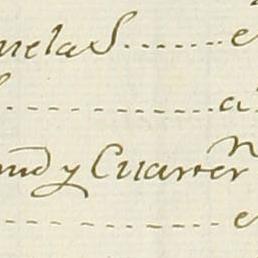 uelas ........ e
- - - - - - - - a
md y Cuarter^n
- - - - - - - - e